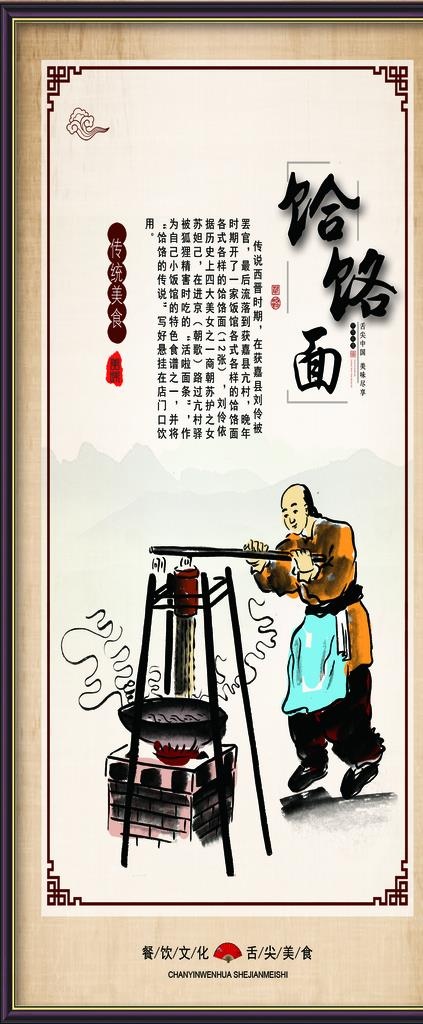 饸饹面
舌尖中国 美味尽享
传说西晋时期，在获嘉县刘伶被
罢官，最后流落到获嘉县亢村，晚年
时期开了一家饭馆各式各样的饸饹面
各式各样的饸饹面（12张），刘伶依
据历史上四大美女之一商朝苏护之女
苏妲己，在进京（朝歌）路过亢村驿
被狐狸精害时吃的“活啦面条”，作
为自己小饭馆的特色食谱之一，并将
“饸饹的传说”写好悬挂在店门口饮
用。
传统美食
餐/饮/文/化 舌/尖/美/食
CHANYINWENHUA SHEJIANMEISHI